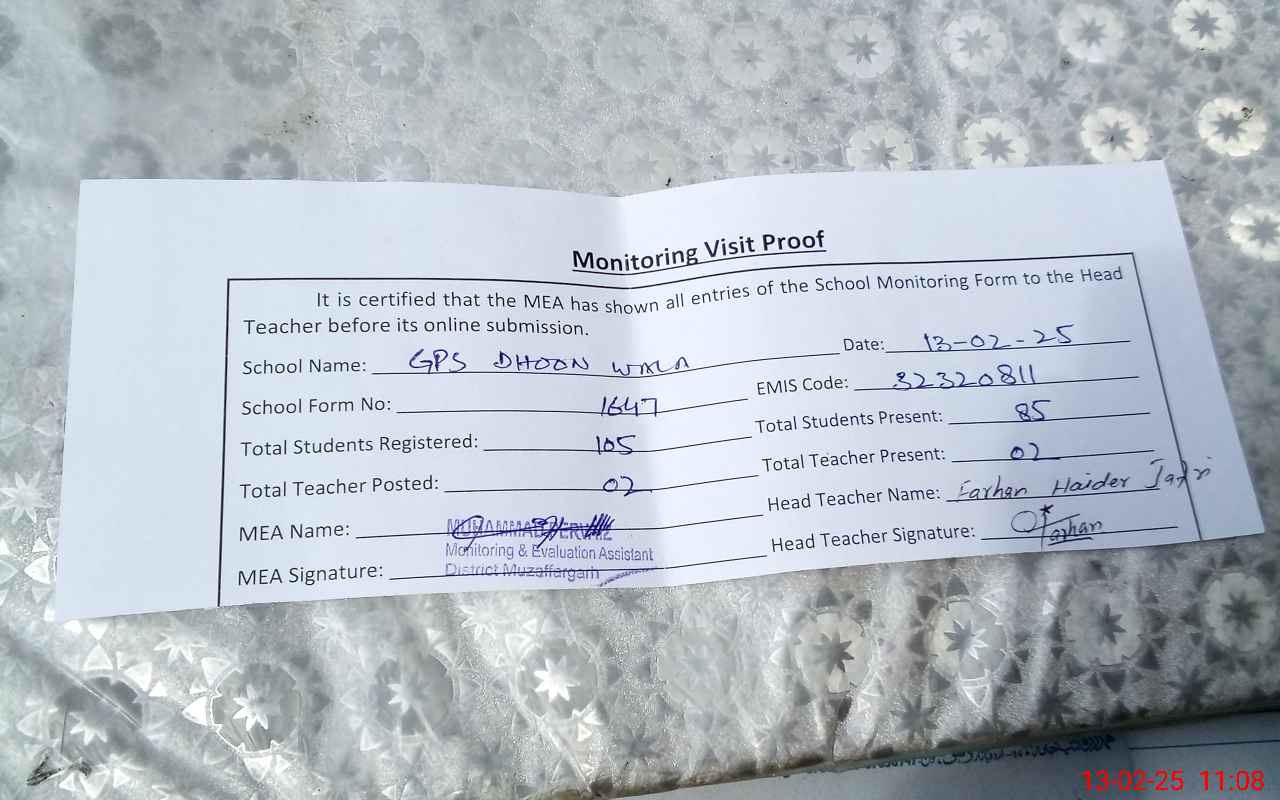 Monitoring Visit Proof
It is certified that the MEA has shown all entries of the School Monitoring Form to the Head
Teacher before its online submission.
School Name: GPS DHOON WALA Date: 13-02-25
School Form No: 1647 EMIS Code: 32320811
Total Students Registered: 105 Total Students Present: 85
Total Teacher Posted: 02 Total Teacher Present: 02
MEA Name: MUHAMMAD PERVAIZ Head Teacher Name: Farhan Haider Jafri
Monitoring & Evaluation Assistant
MEA Signature: District Muzaffargarh Head Teacher Signature: Farhan
13-02-25 11:08